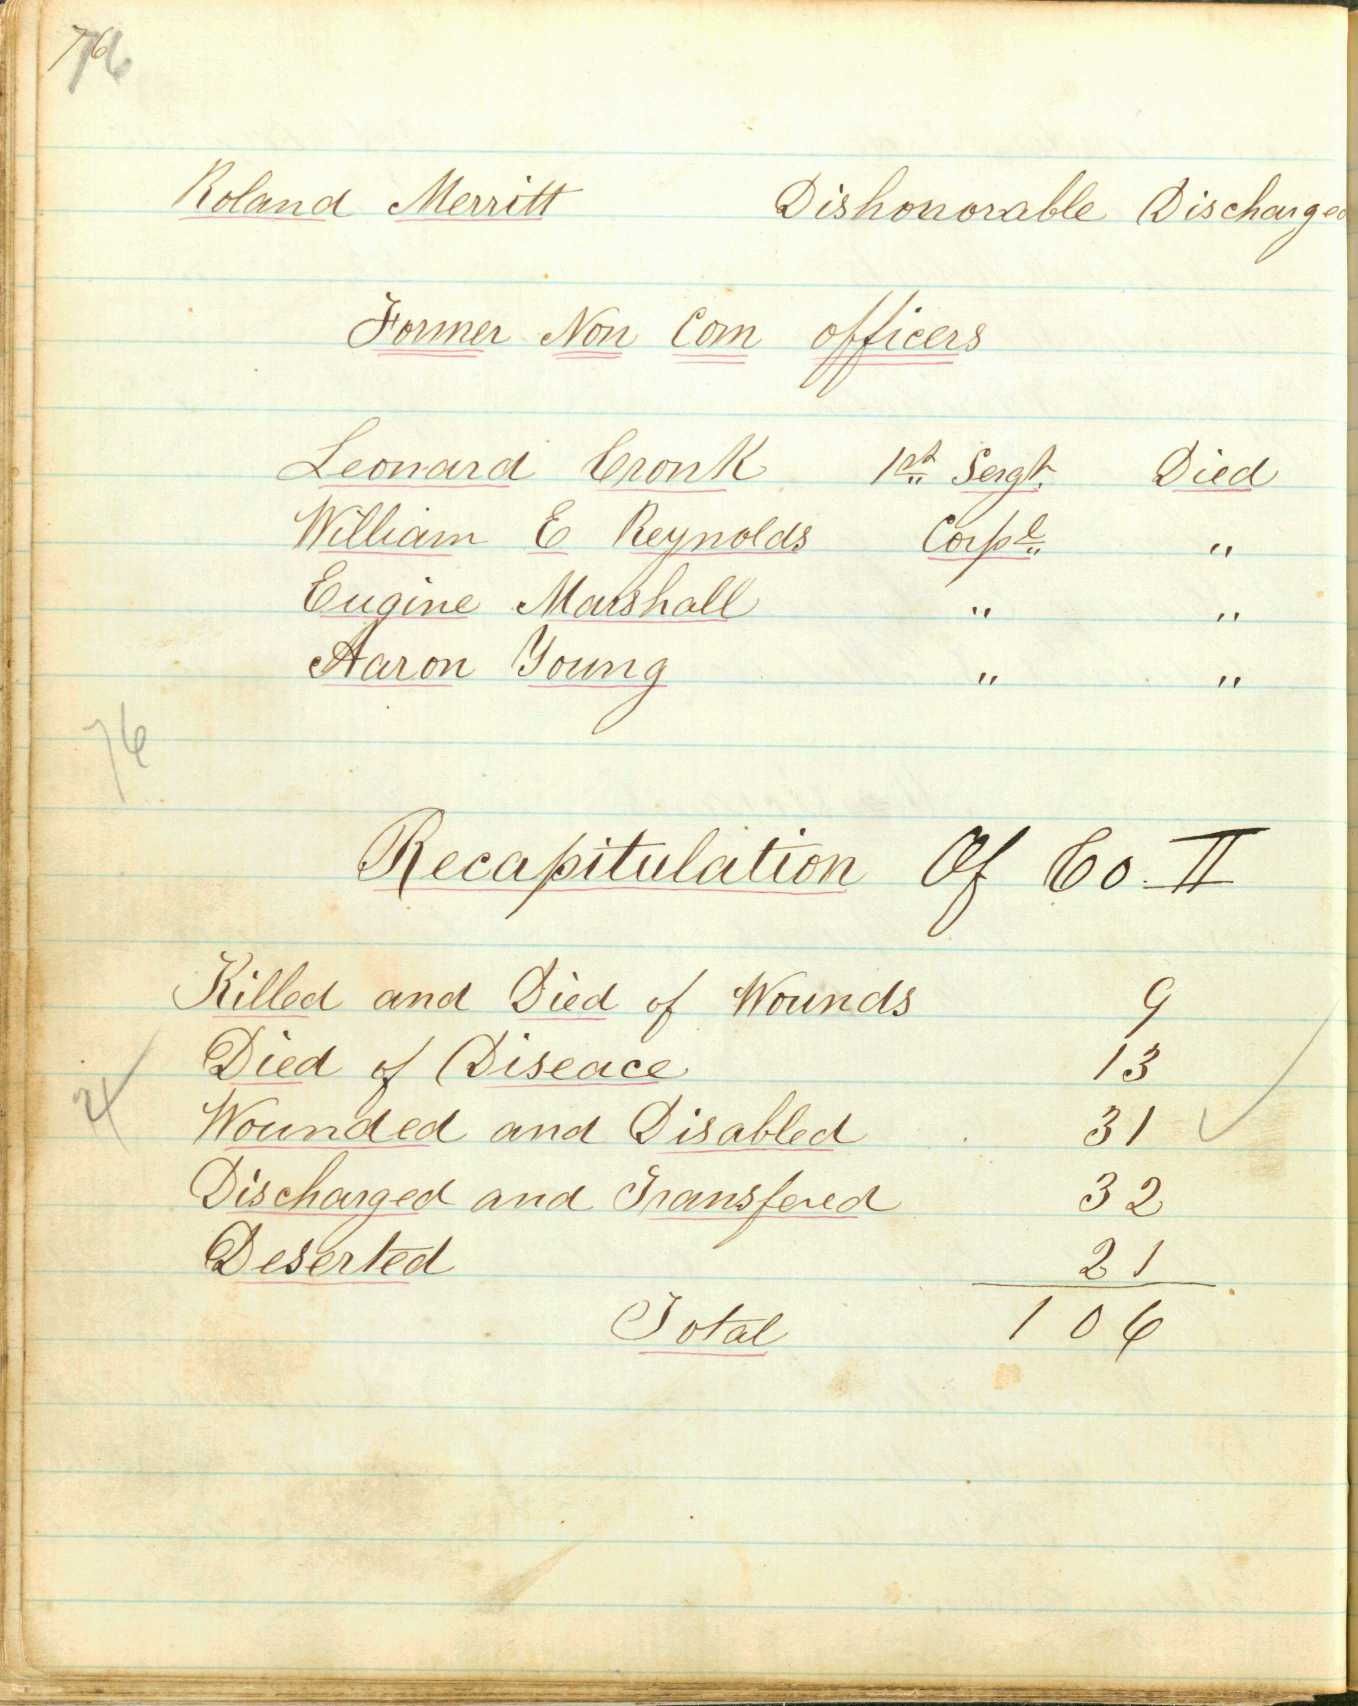 76
76
Roland Merritt Dishonorable Discharged
Former Non Com officers
Leonard Cronk 1st Sergt. Died
William E Reynolds Corpl "
Eugine Marshall " "
Aaron Young " "
76
Recapitulation Of Co. II
Killed and Died of Wounds 9
Died of Diseace 13
Wounded and Disabled 31
Discharged and Transfered 32
Deserted 21
Total 106